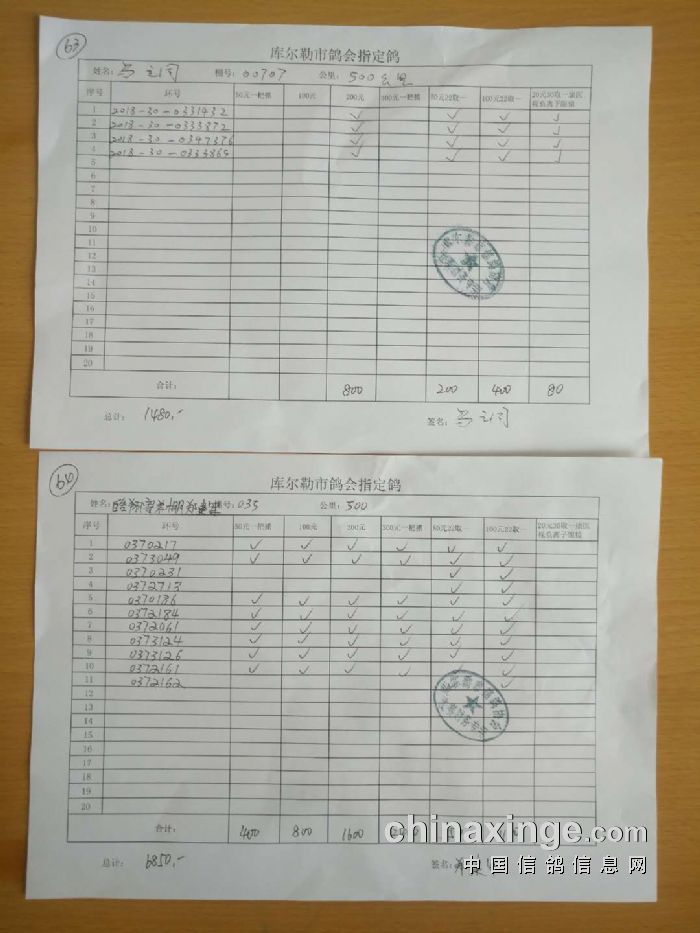 63
库尔勒市鸽会指定鸽
姓名: 棚号: 00707 公里: 500公里
序号 环号 50元一把抓 100元 200元 300元一把抓 50元22取一 100元22取一 20元30取一
1 2018-30-0331432 ✓ ✓ ✓ ✓
2 2018-30-0333872 ✓ ✓ ✓ ✓
3 2018-30-0347376 ✓ ✓ ✓ ✓
4 2018-30-0333869 ✓ ✓ ✓ ✓
5
6
7
8
9
10
11
12
13
14
15
16
17
18
19
20
合计: 800 200 400 80
总计: 1480,- 签名:
60
库尔勒市鸽会指定鸽
姓名: 棚号: 035 公里: 500
序号 环号 50元一把抓 100元 200元 300元一把抓 50元22取一 100元22取一 20元30取一
1 0370217 ✓ ✓ ✓ ✓ ✓ ✓
2 0373049 ✓ ✓ ✓ ✓ ✓ ✓
3 0370231 ✓ ✓
4 0372713 ✓ ✓
5 0370186 ✓ ✓ ✓ ✓ ✓ ✓
6 0372184 ✓ ✓ ✓ ✓ ✓ ✓
7 0372061 ✓ ✓ ✓ ✓ ✓ ✓
8 0373124 ✓ ✓ ✓ ✓ ✓ ✓
9 0373126 ✓ ✓ ✓ ✓ ✓ ✓
10 0372161 ✓ ✓ ✓ ✓ ✓ ✓
11 0372162 ✓
12
13
14
15
16
17
18
19
20
合计: 400 800 1600
总计: 6850,- 签名:
chinaxinge.com
中国信鸽信息网